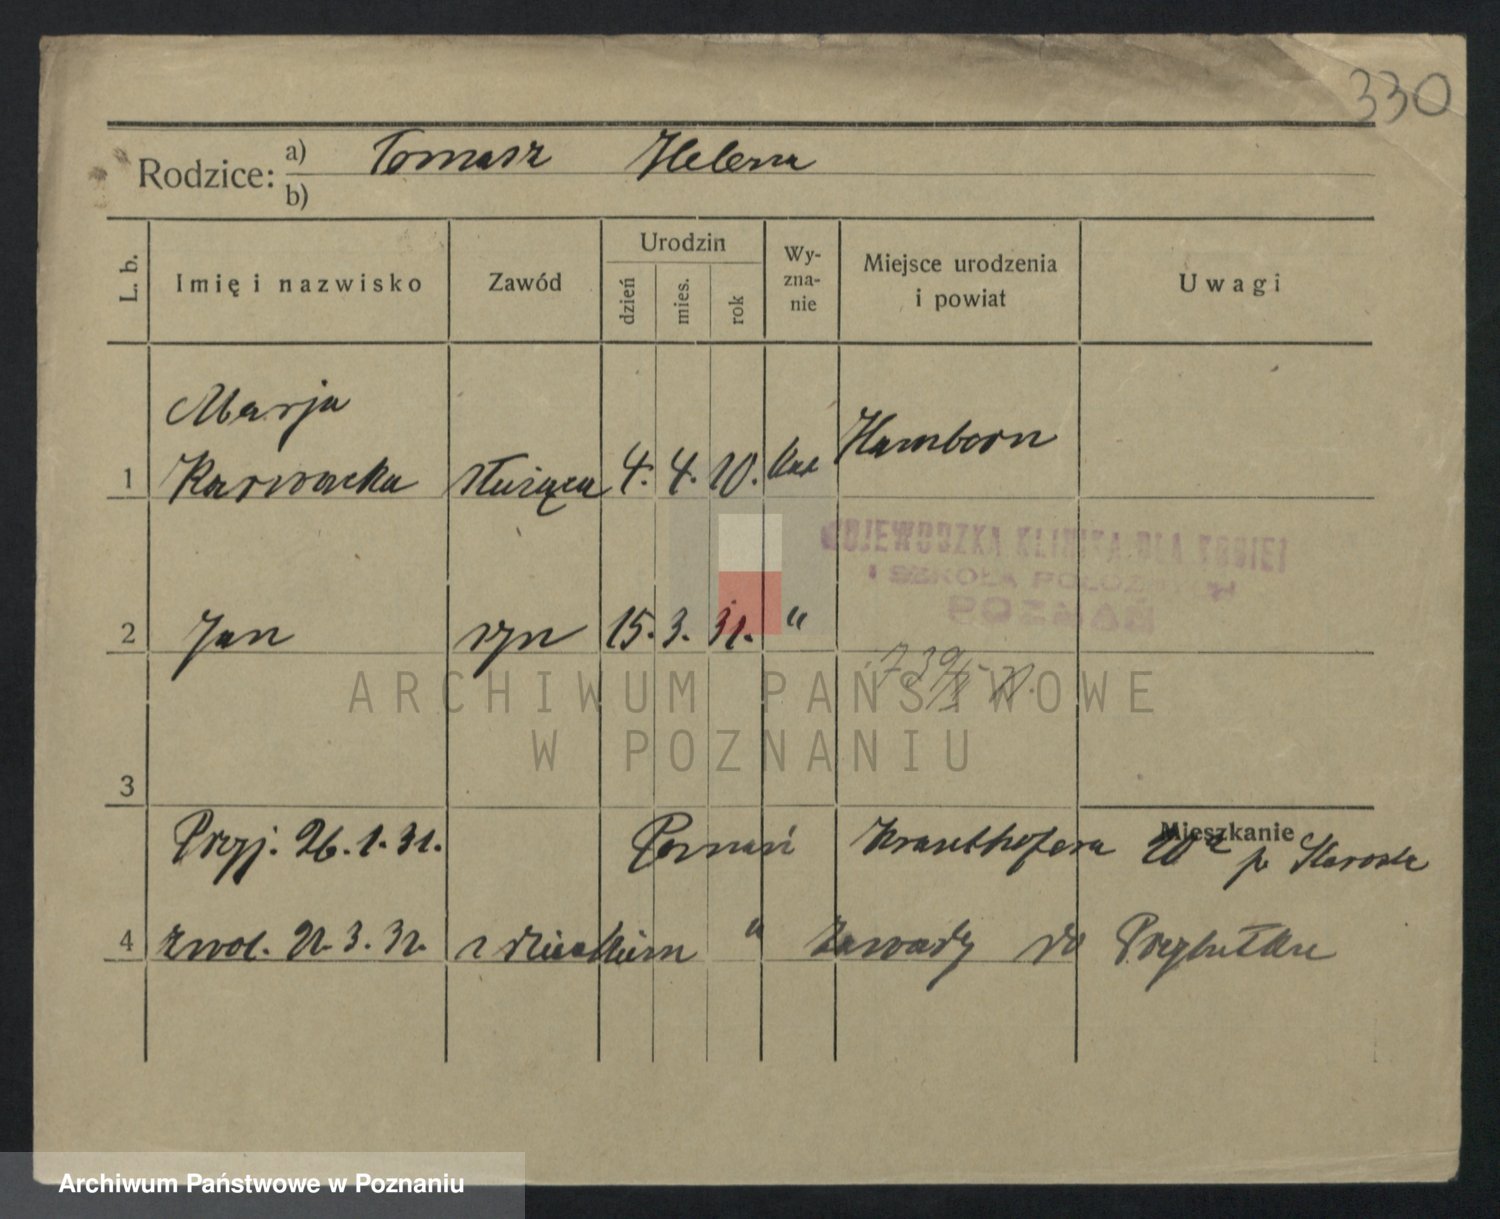 330
Rodzice: a) Tomasz Helena
b)
L. b. Imię i nazwisko Zawód Urodzin dzień mies. rok Wy-zna-nie Miejsce urodzenia i powiat Uwagi
Marja
1 Karwacka służąca 4. 4. 10. kat Hamborn
WOJEWÓDZKA KLINIKA DLA KOBIET
I SZKOŁA POŁOŻNYCH
POZNAŃ
2 Jan syn 15. 3. 31. "
ARCHIWUM PAŃSTWOWE
W POZNANIU
3
Mieszkanie
Przyj. 26. 1. 31. Poznań Krauthofera p. Starosta
4 zwol. 3. z dzieckiem " Zawady do
Archiwum Państwowe w Poznaniu